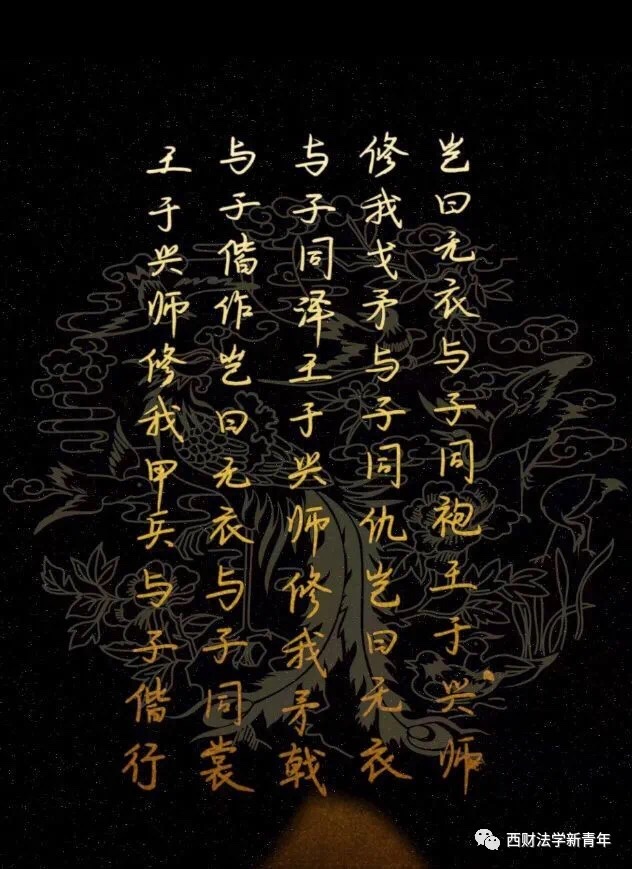 岂曰无衣与子同袍王于兴师
修我戈矛与子同仇岂曰无衣
与子同泽王于兴师修我矛戟
与子偕作岂曰无衣与子同裳
王于兴师修我甲兵与子偕行
西财法学新青年